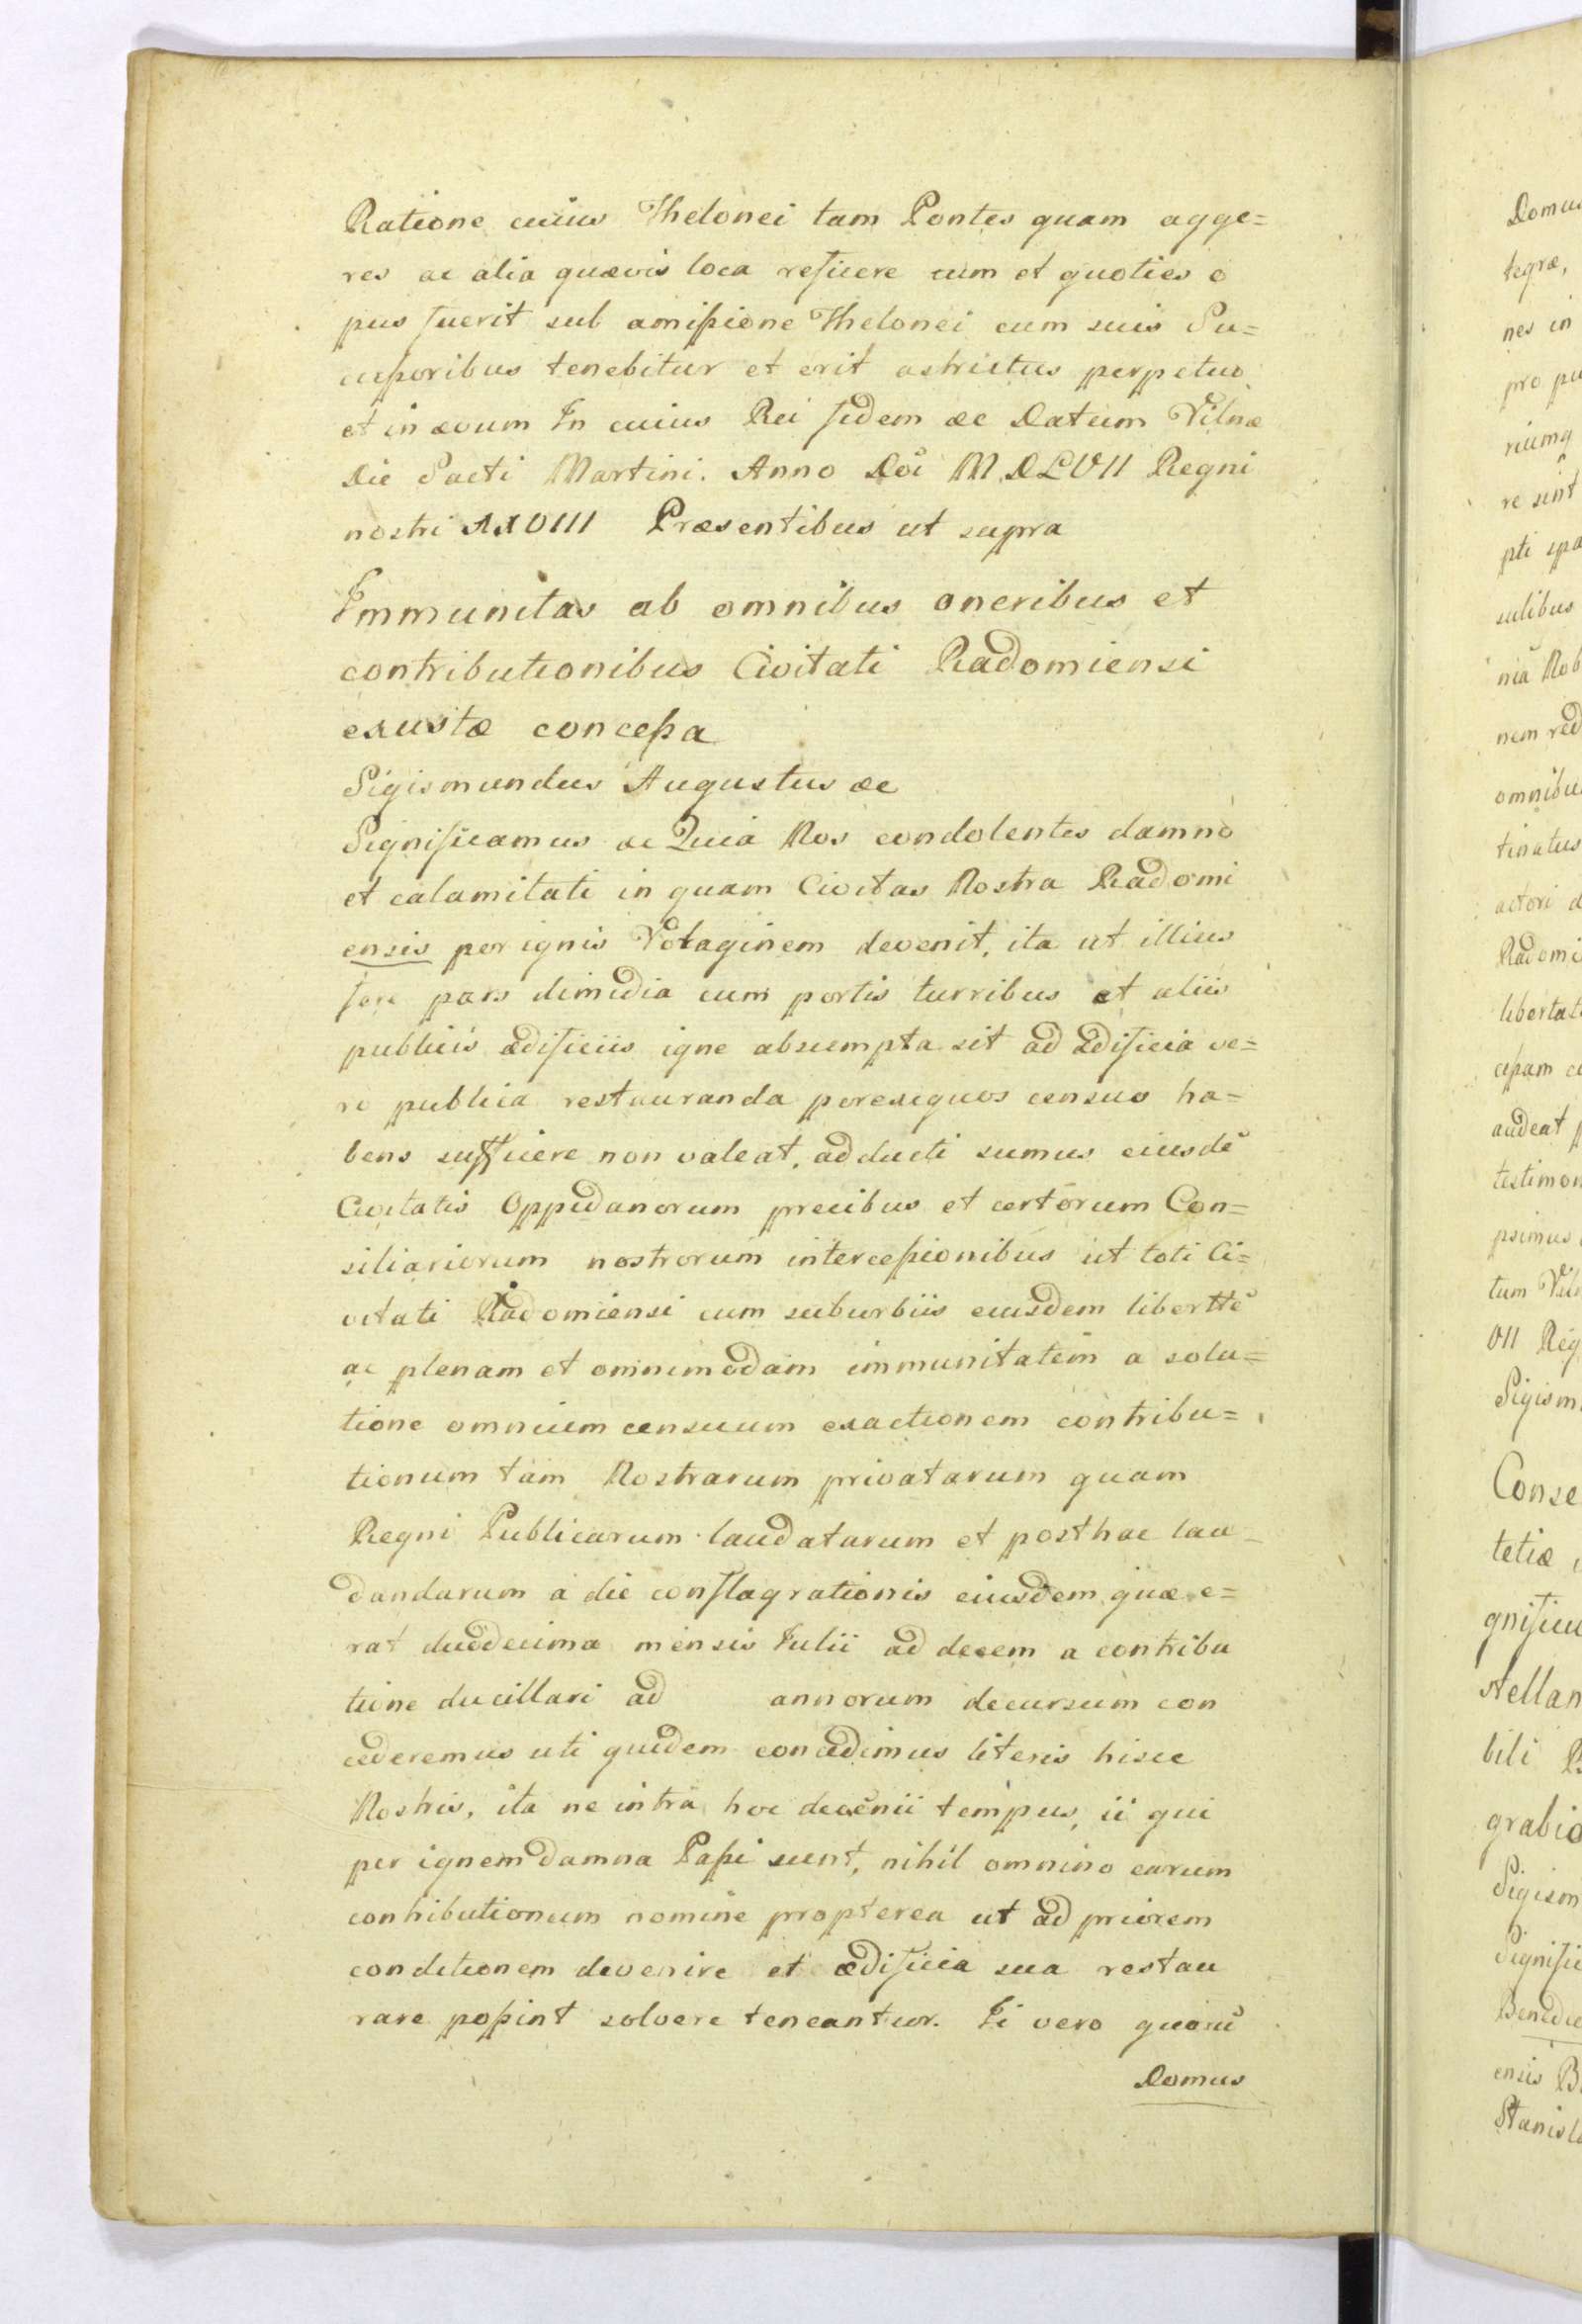 Ratione cuius Thelonei tam Pontes quam agge=
res ac alia quævis loca reficere cum et quoties o
pus fuerit sub amißione Thelonei cum suis Su=
ceßoribus tenebitur et erit astrictus perpetuo
et in ævum In cuius Rei fidem æc Datum Vilnæ
Die Sacti Martini. Anno Doi M.DLVII Regni
nostri XXVIII Præsentibus ut supra
Immunitas ab omnibus oneribus et
contributionibus Civitati Radomiensi
exustæ conceßa
Sigismundus Augustus æc
Significamus æc Quia Nos condolentes damno
et calamitati in quam Civitas Nostra Radomi
ensis per ignis Votaginem devenit, ita ut illius
fere pars dimidia cum portis turribus et aliis
publicis ædificiis igne absumpta sit ad ædificia ve=
ro publica restauranda perexiguos census ha=
bens sufficere non valeat, adducti sumus eiusdē
Civitatis Oppidanorum precibus et certorum Con=
siliariorum nostrorum interceßionibus ut toti Ci=
vitati Radomiensi cum suburbiis eiusdem libertte
ac plenam et omnimodam immunitatem a solu=
tione omnium censuum exactionem contribu=
tionum tam Nostrarum privatarum quam
Regni Publicarum laudatarum et posthac lau=
dandarum a die conflagrationis eiusdem quæ e=
rat duodecima mensis Iulii ad decem a contribu
tione ducillari ad annorum decursum con
cederemus uti quidem concedimus literis hisce
Nostris, ita ne intra hoc decēnii tempus, ii qui
per ignem damna Paßi sunt, nihil omnino earum
contributionum nomine propterea ut ad priorem
conditionem devenire et ædificia sua restau
rare poßint solvere teneantur. Ii vero quorū
Domus
Domus
tegræ,
nes in
pro pu
riumq
re sint
pti spa
sulibus
nia Nob
nem red
omnibu
tinatus
actori d
Radomi
libertat
ceßam c
audeat p
testimon
psimus
tum Viln
VII Reg
Sigism
Conse
tetiæ
gnificu
stellan
bili
grabio
Sigism
Signific
Benedic
ensis B
Stanisl